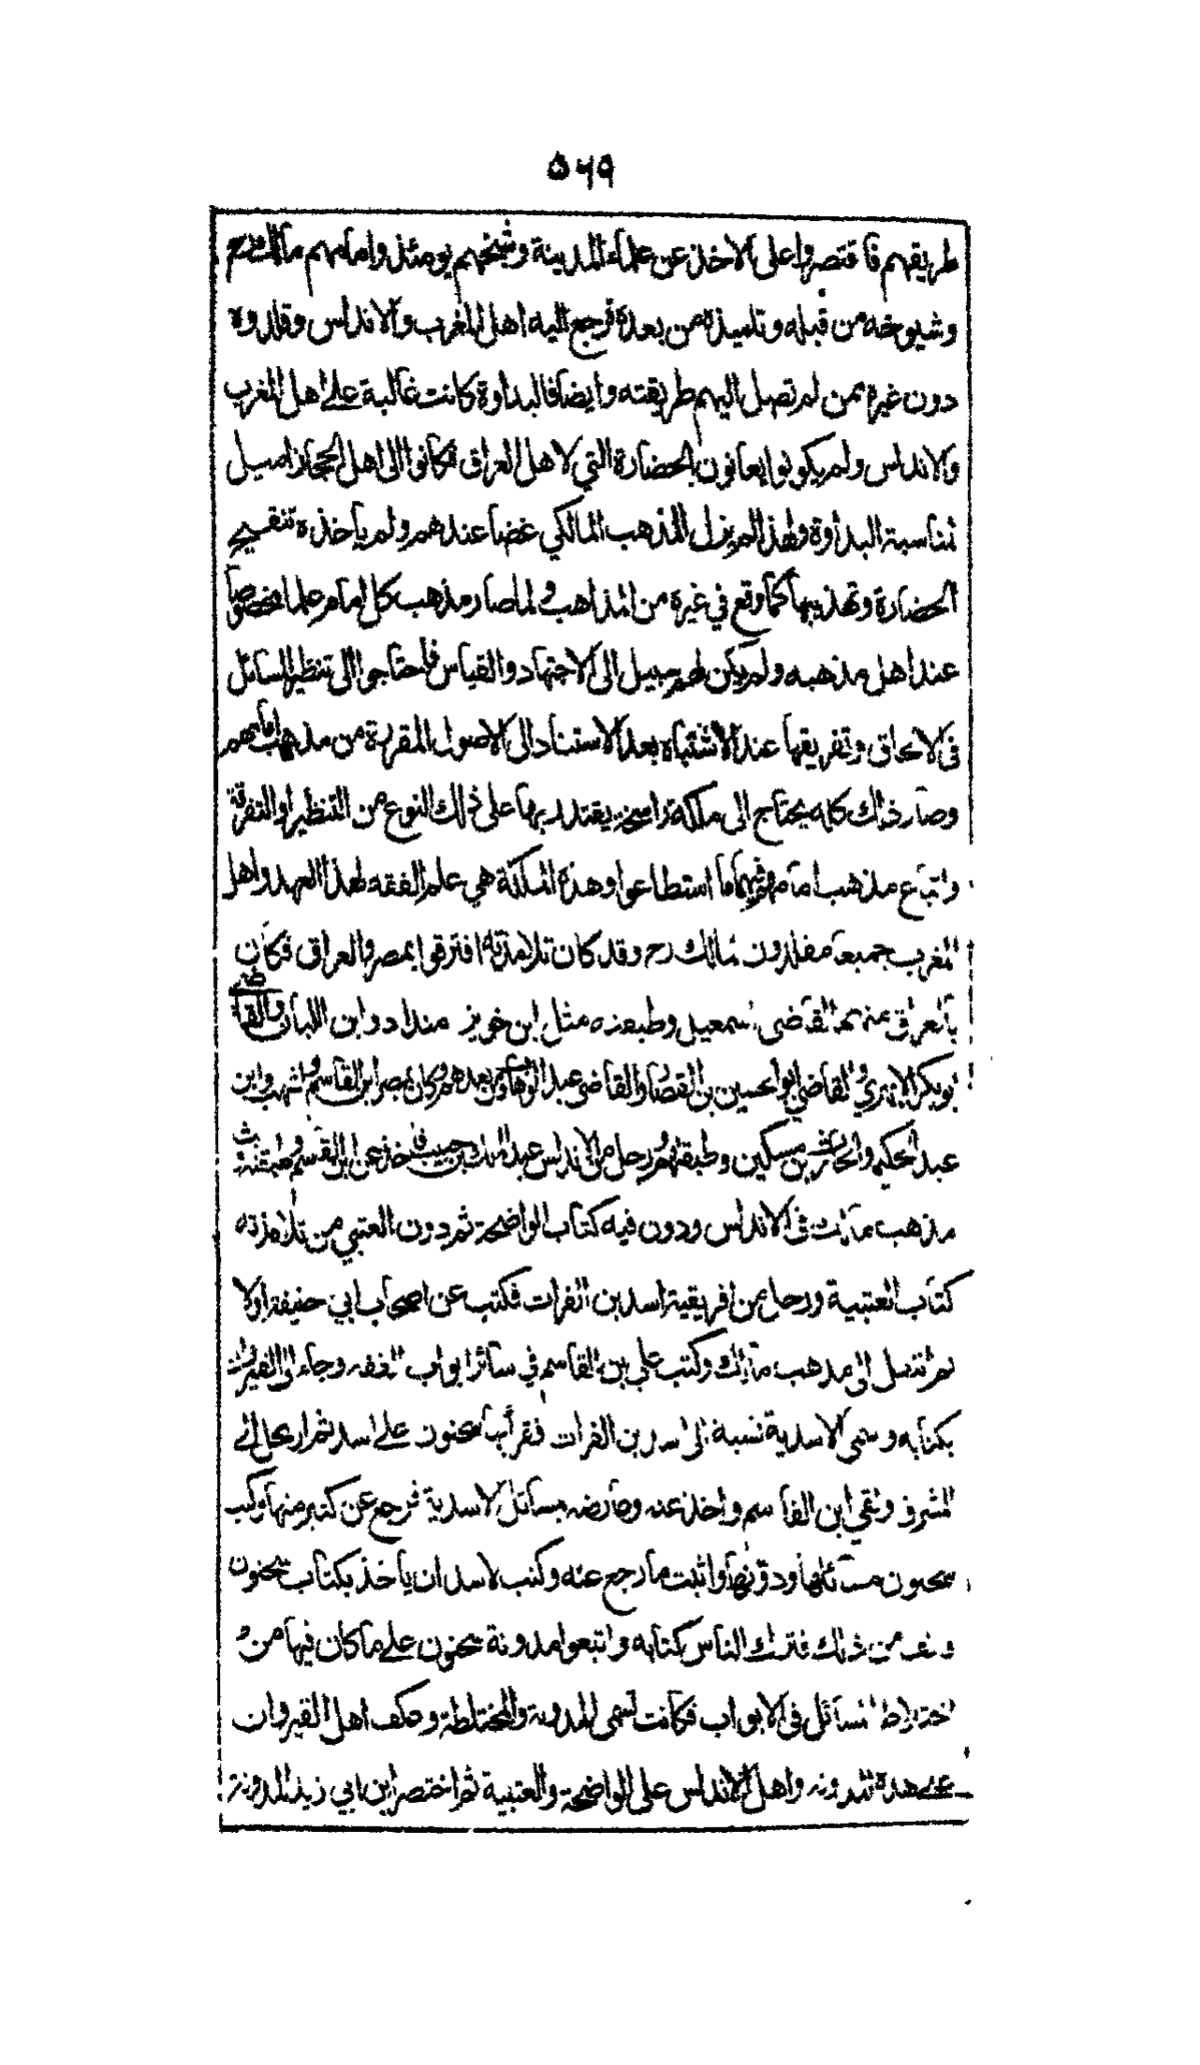 ٥٦٩
طريقهم فاقتصروا على الاخذ عن علماء المدينة وشيخهم يومئذ وامامهم مالك رح
وشيوخه من قبله وتلميذه من بعده فرجع اليه اهل المغرب والاندلس وقلدوه
دون غيره ممن لم تصل اليهم طريقته وايضا فالبداوة كانت غالبة على اهل المغرب
والاندلس ولم يكونوا يعانون الحضارة التي لاهل العراق فكانوا الى اهل الحجاز اميل
لمناسبة البداوة ولهذا لم يزل المذهب المالكي غضا عندهم ولم ياخذه تنقيح
الحضارة وتهذيبها كما وقع في غيره من المذاهب ولما صار مذهب كل امام علما مخصوصا
عند اهل مذهبه ولم يكن لهم سبيل الى الاجتهاد والقياس فاحتاجوا الى تنظير المسائل
في الالحاق وتفريقها عند الاشتباه بعد الاستناد الى الاصول المقررة من مذهب امامهم
وصار ذلك كله يحتاج الى ملكة راسخة يقتدر بها على ذلك النوع من التنظير او التفرقة
واتباع مذهب امامهم فيهما ما استطاعوا وهذه الملكة هي علم الفقه لهذا العهد واهل
المغرب جميعا مقلدون لمالك رح وقد كان تلامذته افترقوا بمصر والعراق فكان
بالعراق منهم القاضي اسمعيل وطبقته مثل ابن خويز منداد وابن اللبان والقاضي
ابو بكر الابهري والقاضي ابو الحسين بن القصار والقاضي عبد الوهاب ومن بعدهم وكان بمصر ابن القاسم واشهب وابن
عبد الحكيم والحارث بن مسكين وطبقتهم ورحل من الاندلس عبد الملك بن حبيب فاخذ عن ابن القسم وطبقته وبث
مذهب مالك في الاندلس ودون فيه كتاب الواضحة ثم دون العتبي من تلامذته
كتاب العتبية ورحل من افريقية اسد بن الفرات فكتب عن اصحاب ابي حنيفة اولا
ثم انتقل الى مذهب مالك وكتب على بن القاسم في سائر ابواب الفقه وجاء الى القيروان
بكتابه وسمى الاسدية نسبة الى اسد بن الفرات فقرأ بها سحنون على اسد ثم ارتحل الى
المشرق ولقي ابن القاسم واخذ عنه وعارضه بمسائل الاسدية فرجع عن كثير منها وكتب
سحنون مسائلها ودونها واثبت ما رجع عنه وكتب لاسد ان ياخذ بكتاب سحنون
وانف من ذلك فترك الناس كتابه واتبعوا مدونة سحنون على ما كان فيها من
اختلاط المسائل في الابواب فكانت تسمى المدونة والمختلطة وعكف اهل القيروان
على هذه المدونة واهل الاندلس على الواضحة والعتبية ثم اختصر ابن ابي زيد المدونة